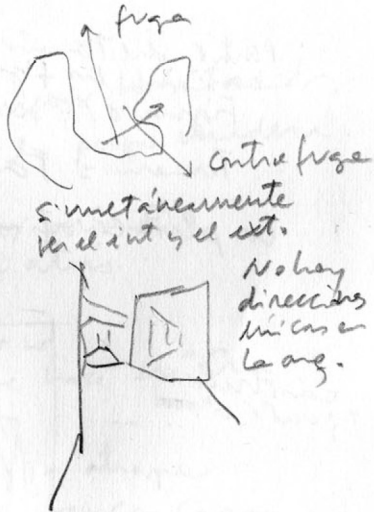 fuga
contrafuga
simultáneamente
ver el int y el ext.
No hay
direcciones
únicas en
la arq.